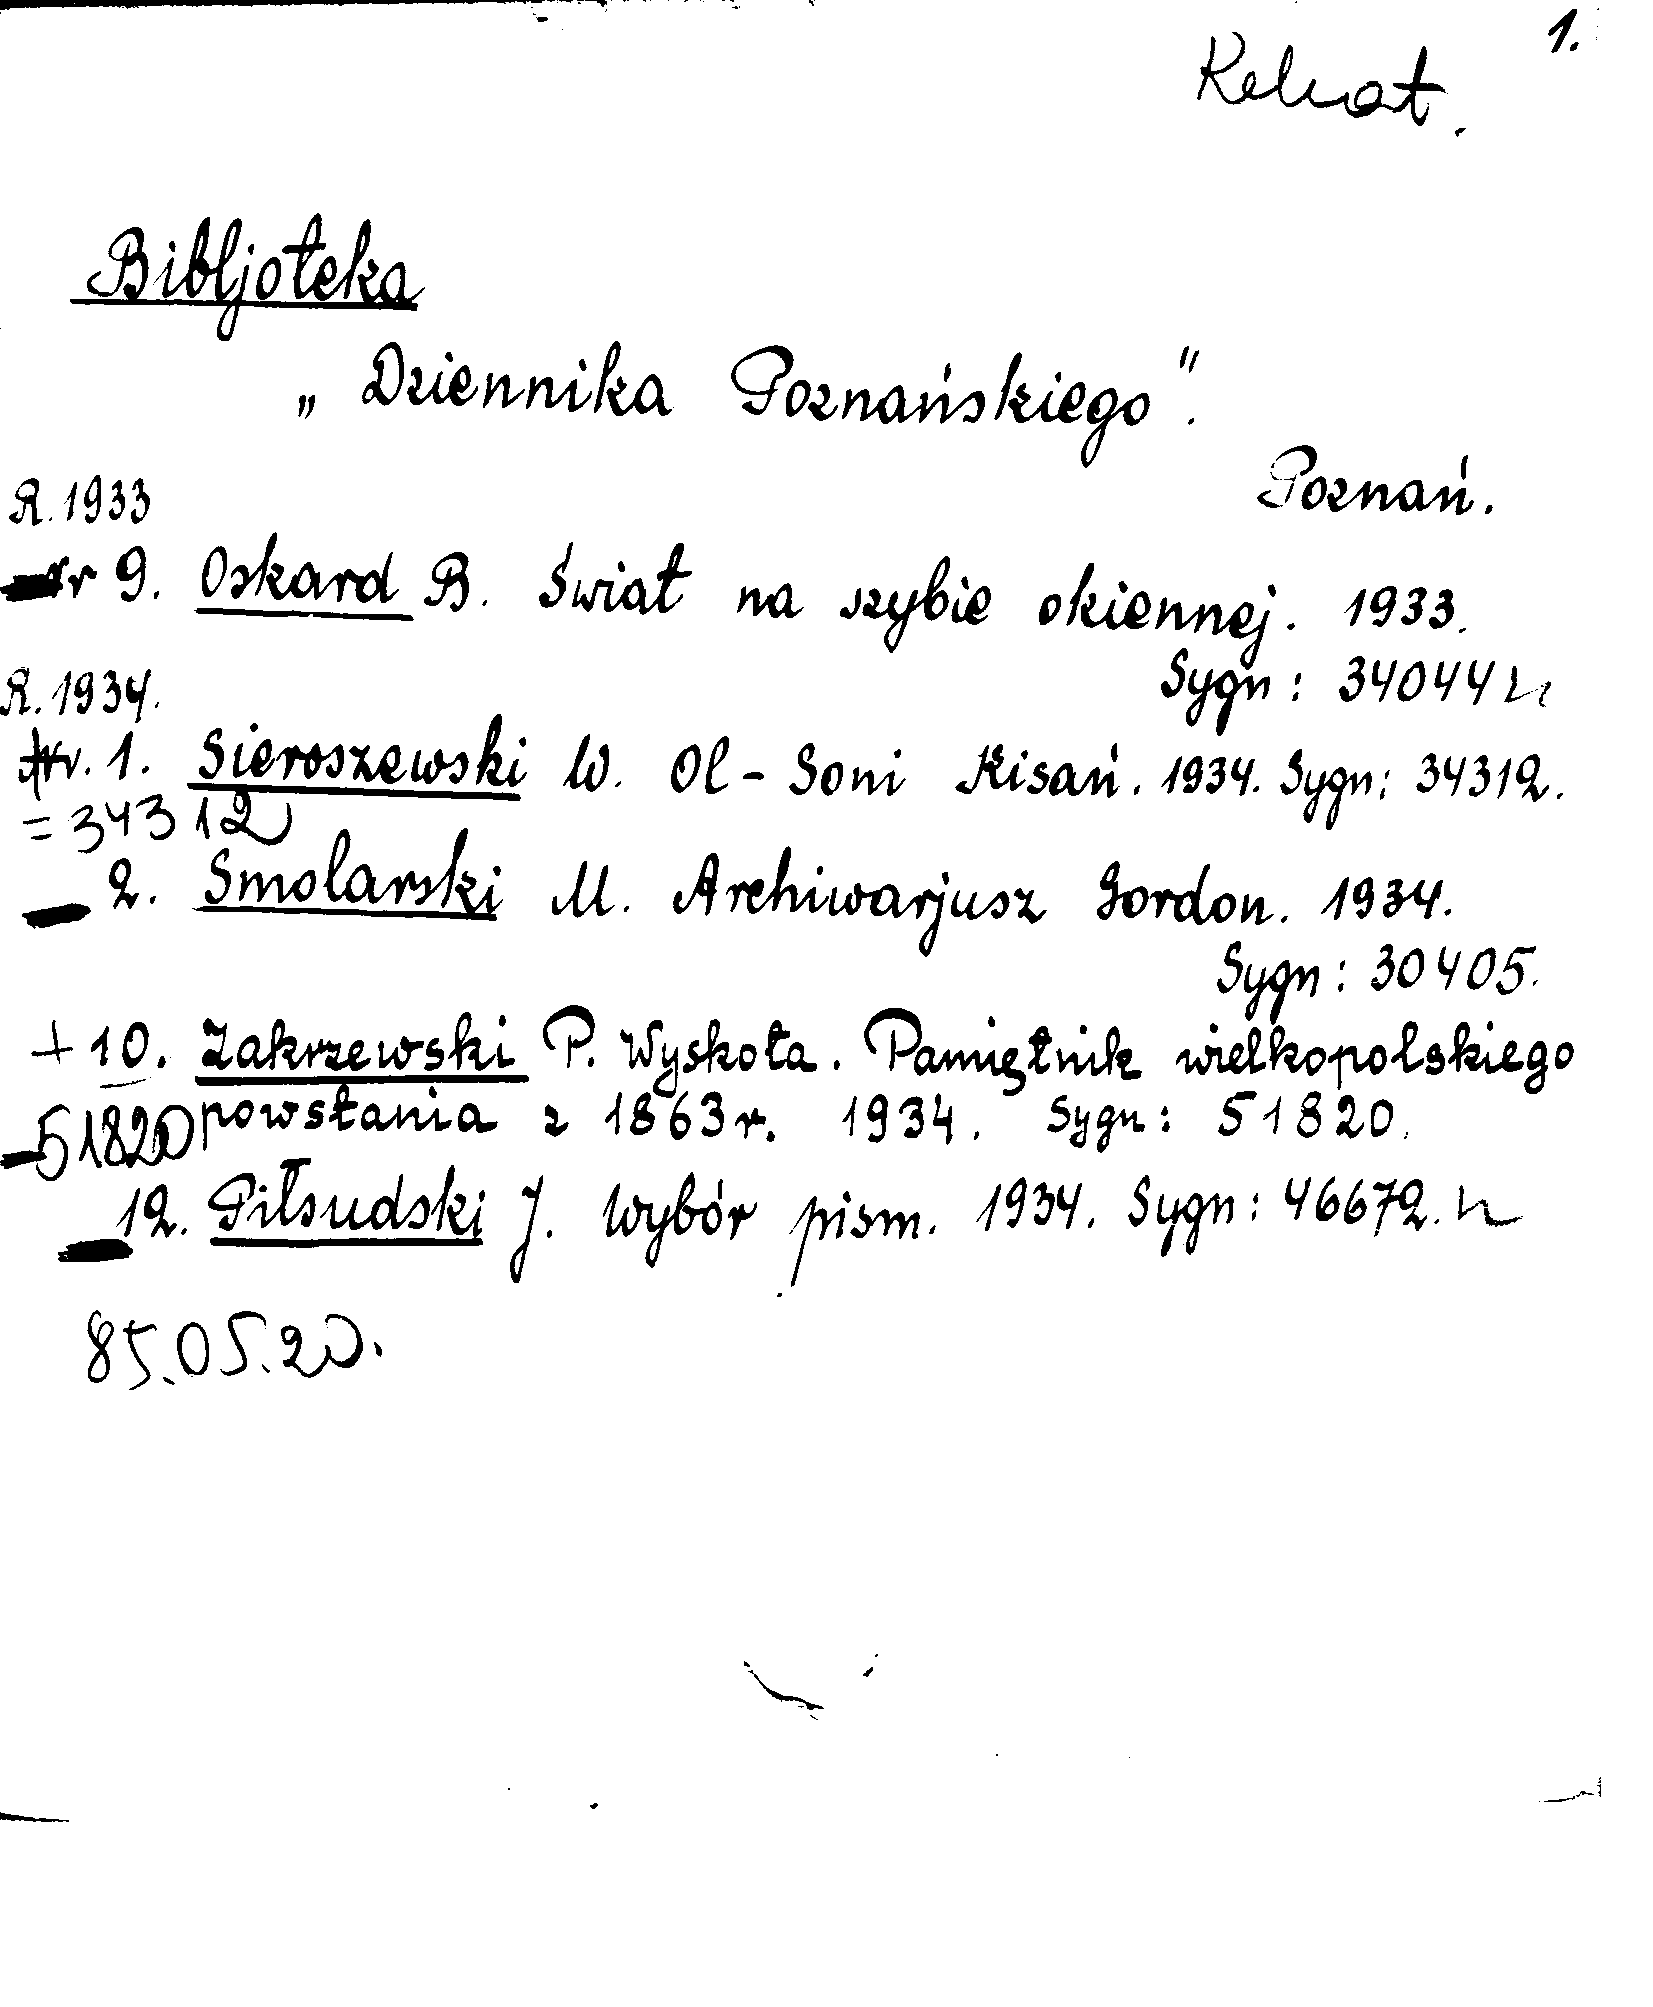 1.
Bibljoteka
„Dziennika Poznańskiego".
Poznań.
R. 1933
nr 9. Oskard B. Świat na szybie okiennej. 1933.
Sygn: 34044
R. 1934.
nr. 1. Sieroszewski W. Ol-Soni Kisań. 1934. Sygn: 34312.
= 34312
2. Smolarski M. Archiwarjusz Gordon. 1934.
Sygn: 30405.
+ 10. Zakrzewski P. Wyskota. Pamiętnik wielkopolskiego
51820 powstania z 1863 r. 1934. Sygn: 51820.
12. Piłsudski J. Wybór pism. 1934. Sygn: 46672.
85.05.20.